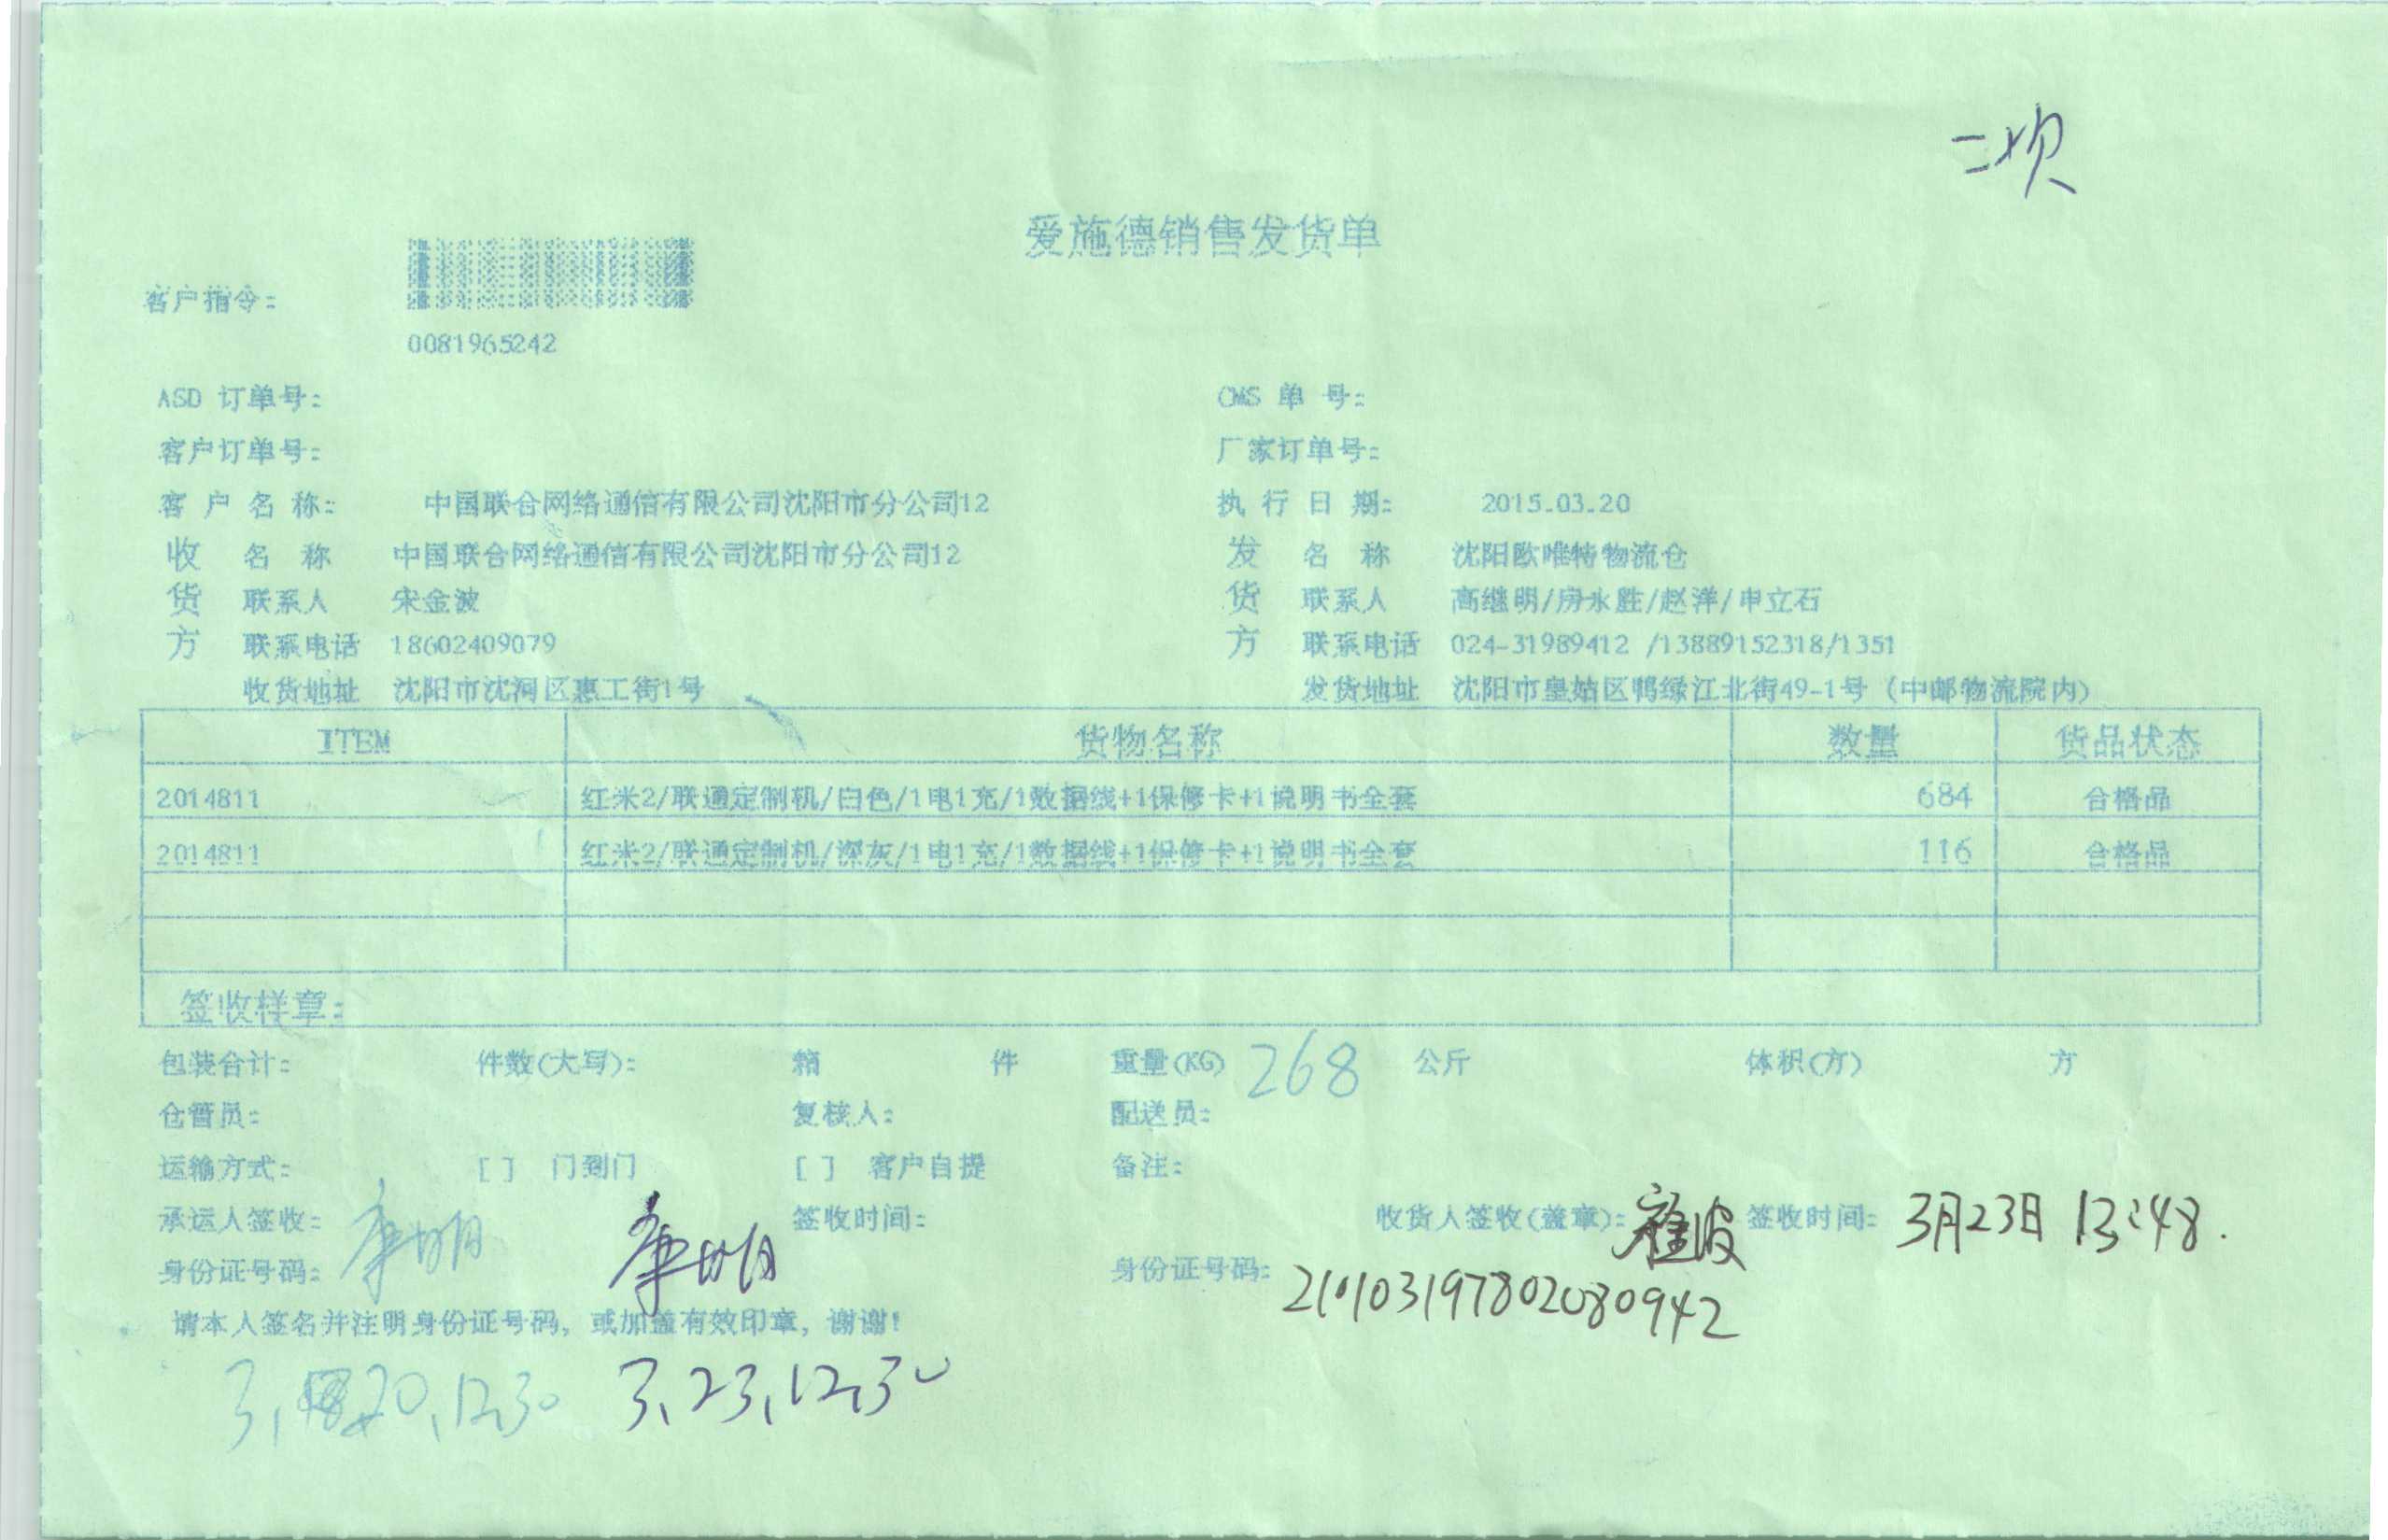 二次
爱施德销售发货单
客户指令:
0081965242
ASD 订单号: CMS 单 号:
客户订单号: 厂家订单号:
客 户 名 称: 中国联合网络通信有限公司沈阳市分公司12 执 行 日 期: 2015.03.20
收 名 称 中国联合网络通信有限公司沈阳市分公司12 发 名 称 沈阳欧唯特物流仓
货 联系人 宋金波 货 联系人 高继明/房永胜/赵洋/申立石
方 联系电话 18602409079 方 联系电话 024-31989412 /13889152318/1351
收货地址 沈阳市沈河区惠工街1号 发货地址 沈阳市皇姑区鸭绿江北街49-1号 (中邮物流院内)
ITEM 货物名称 数量 货品状态
2014811 红米2/联通定制机/白色/1电1充/1数据线+1保修卡+1说明书全套 684 合格品
2014811 红米2/联通定制机/深灰/1电1充/1数据线+1保修卡+1说明书全套 116 合格品
签收样章:
包装合计: 件数(大写): 箱 件 重量(KG) 268 公斤 体积(方) 方
仓管员: 复核人: 配送员:
运输方式: [ ] 门到门 [ ] 客户自提 备注:
承运人签收: 签收时间: 收货人签收(盖章): 签收时间: 3月23日 13:48.
身份证号码: 身份证号码: 210103197802080942
请本人签名并注明身份证号码, 或加盖有效印章, 谢谢!
3,20,12,30 3,23,12,30